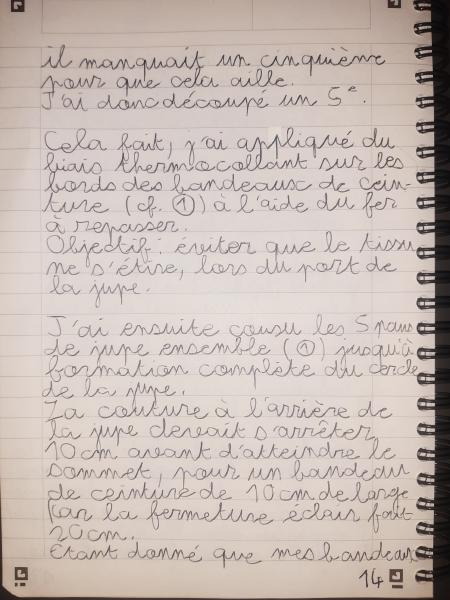 il manquait un cinquième
pour que cela aille.
J'ai donc découpé un 5e.
Cela fait, j'ai appliqué du
biais thermocollant sur les
bords des bandeaux de cein-
ture (cf. ①) à l'aide du fer
à repasser.
Objectif : éviter que le tissu
ne s'étire, lors du port de
la jupe.
J'ai ensuite cousu les 5 pans
de jupe ensemble (①) jusqu'à
formation complète du cercle
de la jupe.
La couture à l'arrière de
la jupe devait s'arrêter
10 cm avant d'atteindre le
sommet, pour un bandeau
de ceinture de 10 cm de large
car la fermeture éclair fait
20 cm.
Etant donné que mes bandeaux
14